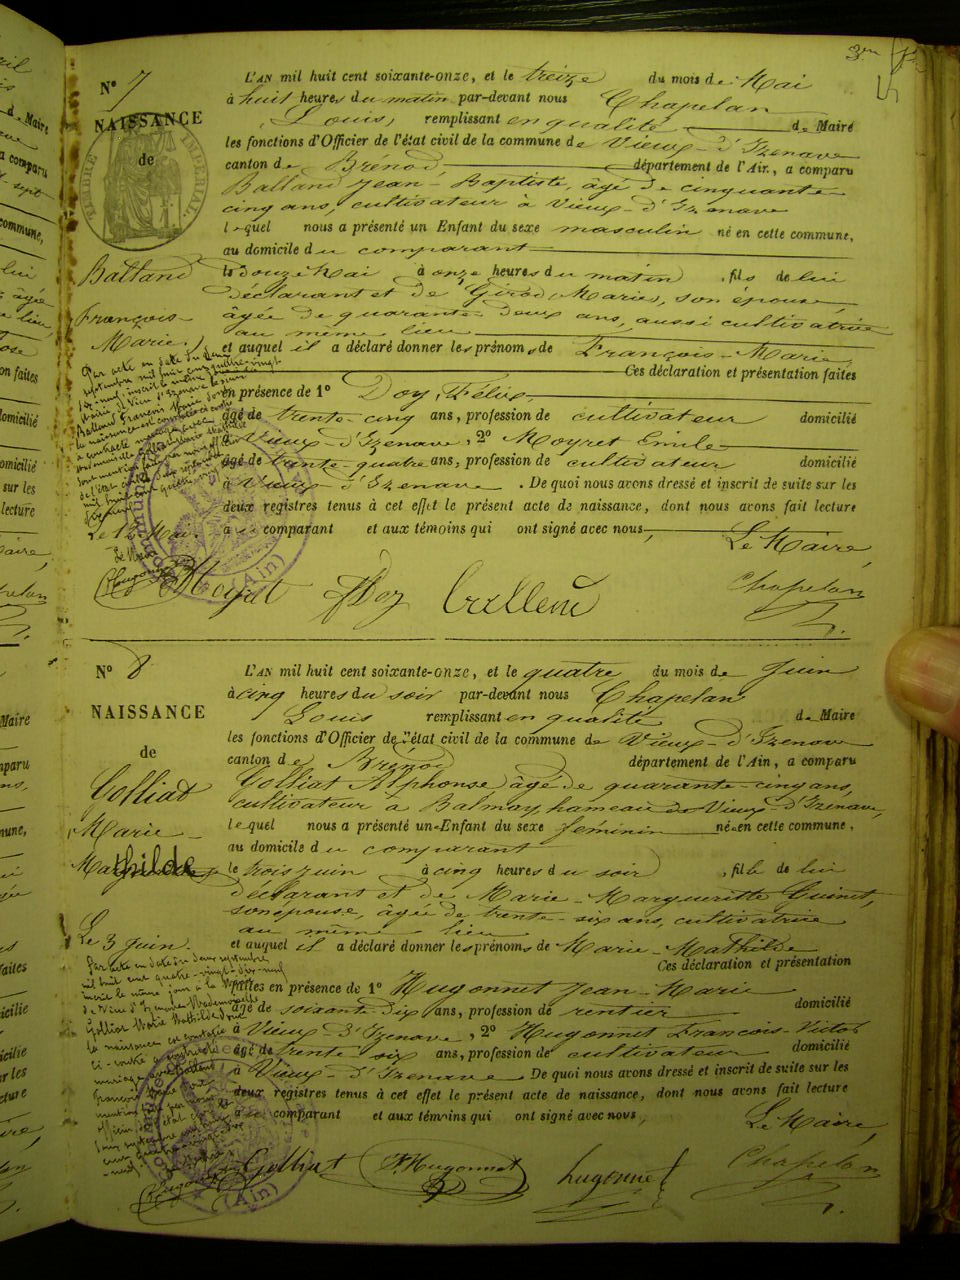 3
5
N° 7
NAISSANCE
de
TIMBRE IMPÉRIAL
Balland
François-
Marie
L'AN mil huit cent soixante-onze, et le treize du mois de Mai
à huit heures du matin par-devant nous Chapelan
Louis, remplissant en qualité de Maire
les fonctions d'Officier de l'état civil de la commune de Vieux-d'Izenave
canton de Brénod, département de l'Air., a comparu
Balland Jean-Baptiste, âgé de cinquante
cinq ans, cultivateur à Vieux-d'Izenave
lequel nous a présenté un Enfant du sexe masculin né en cette commune,
au domicile du comparant
le douze Mai à onze heures du matin, fils de lui
déclarant et de Girod, Marie, son épouse
âgée de quarante deux ans, aussi cultivatrice
au même lieu
et auquel il a déclaré donner les prénoms de François-Marie
Ces déclaration et présentation faites
en présence de 1° Doy, Félix
âgé de trente-cinq ans, profession de cultivateur domicilié
à Vieux d'Izenave, 2° Moyret Emile
âgé de trente-quatre ans, profession de cultivateur domicilié
à Vieux-d'Izenave. De quoi nous avons dressé et inscrit de suite sur les
deux registres tenus à cet effet le présent acte de naissance, dont nous avons fait lecture
à ce comparant et aux témoins qui ont signé avec nous,
Le Maire,
Par acte en date du deux
septembre mil huit cent quatre-vingt
dix-neuf, inscrit le même jour
Balland François Marie dont
la naissance est constatée ci-contre
a contracté mariage avec
Le 12 Mai
Le Maire
Hugonnet
Doy Balland Chapelan
(Ain)
N° 8
NAISSANCE
de
Golliat
Marie-
Mathilde
Le 3 juin.
L'AN mil huit cent soixante-onze, et le quatre du mois de Juin
à cinq heures du soir par-devant nous Chapelan
Louis remplissant en qualité de Maire
les fonctions d'Officier de l'état civil de la commune de Vieux-d'Izenave
canton de Brénod département de l'Ain, a comparu
Golliat Alphonse, âgé de quarante-cinq ans,
cultivateur à Balmay, hameau de Vieux-d'Izenave,
lequel nous a présenté un Enfant du sexe féminin né en cette commune,
au domicile du comparant
le trois juin à cinq heures du soir, fille de lui
déclarant et de Marie-Margueritte Guinet,
son épouse, âgée de trente-six ans, cultivatrice
au même lieu
et auquel il a déclaré donner les prénoms de Marie-Mathilde
Ces déclaration et présentation
faites en présence de 1° Hugonnet Jean-Marie
âgé de soixante-dix ans, profession de rentier domicilié
à Vieux-d'Izenave, 2° Hugonnet François-Victor
âgé de trente six ans, profession de cultivateur domicilié
à Vieux-d'Izenave De quoi nous avons dressé et inscrit de suite sur les
deux registres tenus à cet effet le présent acte de naissance, dont nous avons fait lecture
à ce comparant et aux témoins qui ont signé avec nous,
Le Maire,
Par acte en date du deux septembre
mil huit cent quatre-vingt-dix-neuf
inscrit le même jour à la Mairie
de Vieux d'Izenave Mademoiselle
Golliat Marie Mathilde dont
la naissance est constatée
ci-contre a contracté
mariage avec Balland
François Marie
Golliat JMHugonnet hugonnet Chapelan
(Ain)